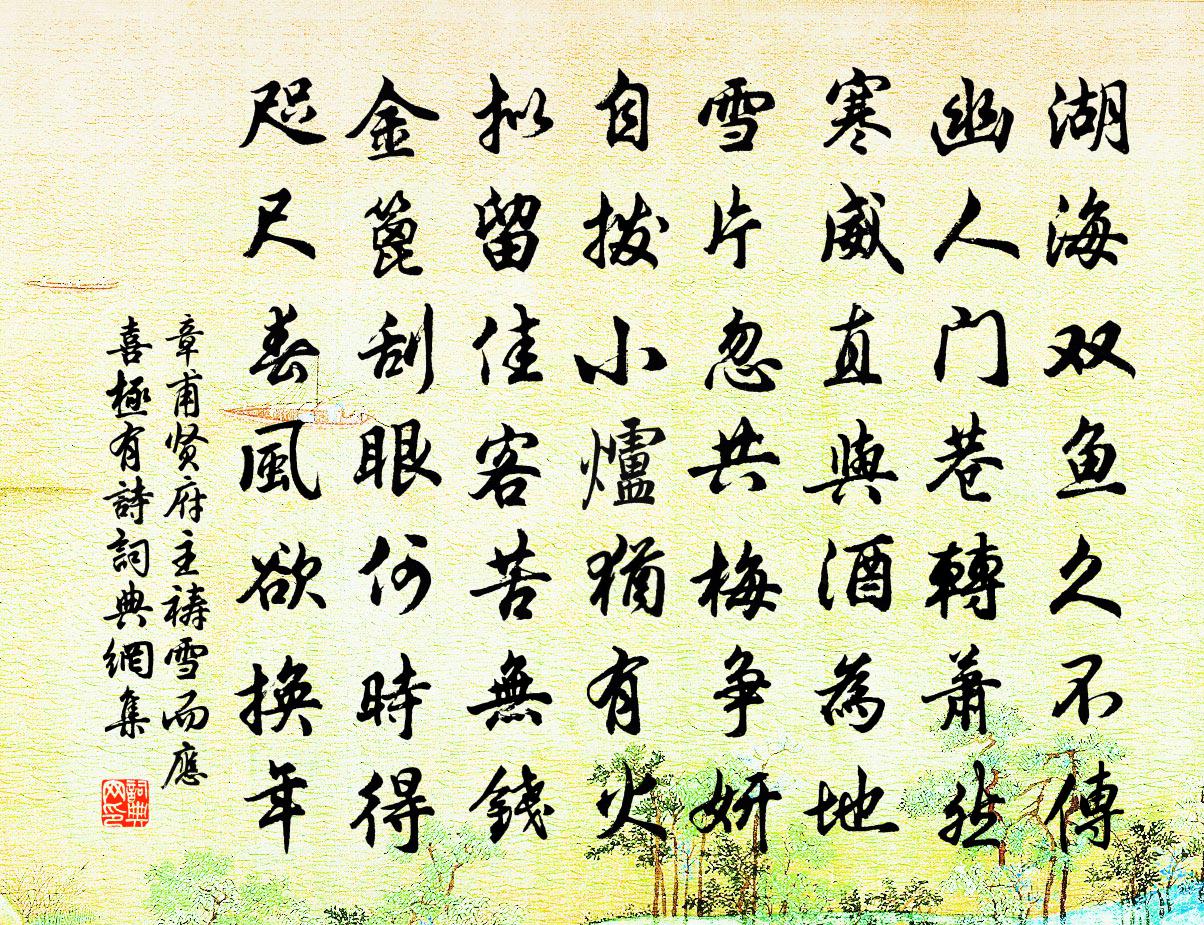 湖海双鱼久不傳
幽人门巷轉萧然
寒威直與酒為地
雪片忽共梅争妍
自拨小爐猶有火
拟留佳客苦無錢
金篦刮眼何時得
咫尺春風欲换年
章甫贤府主祷雪而應
喜極有詩詞典網集
詞典
网印